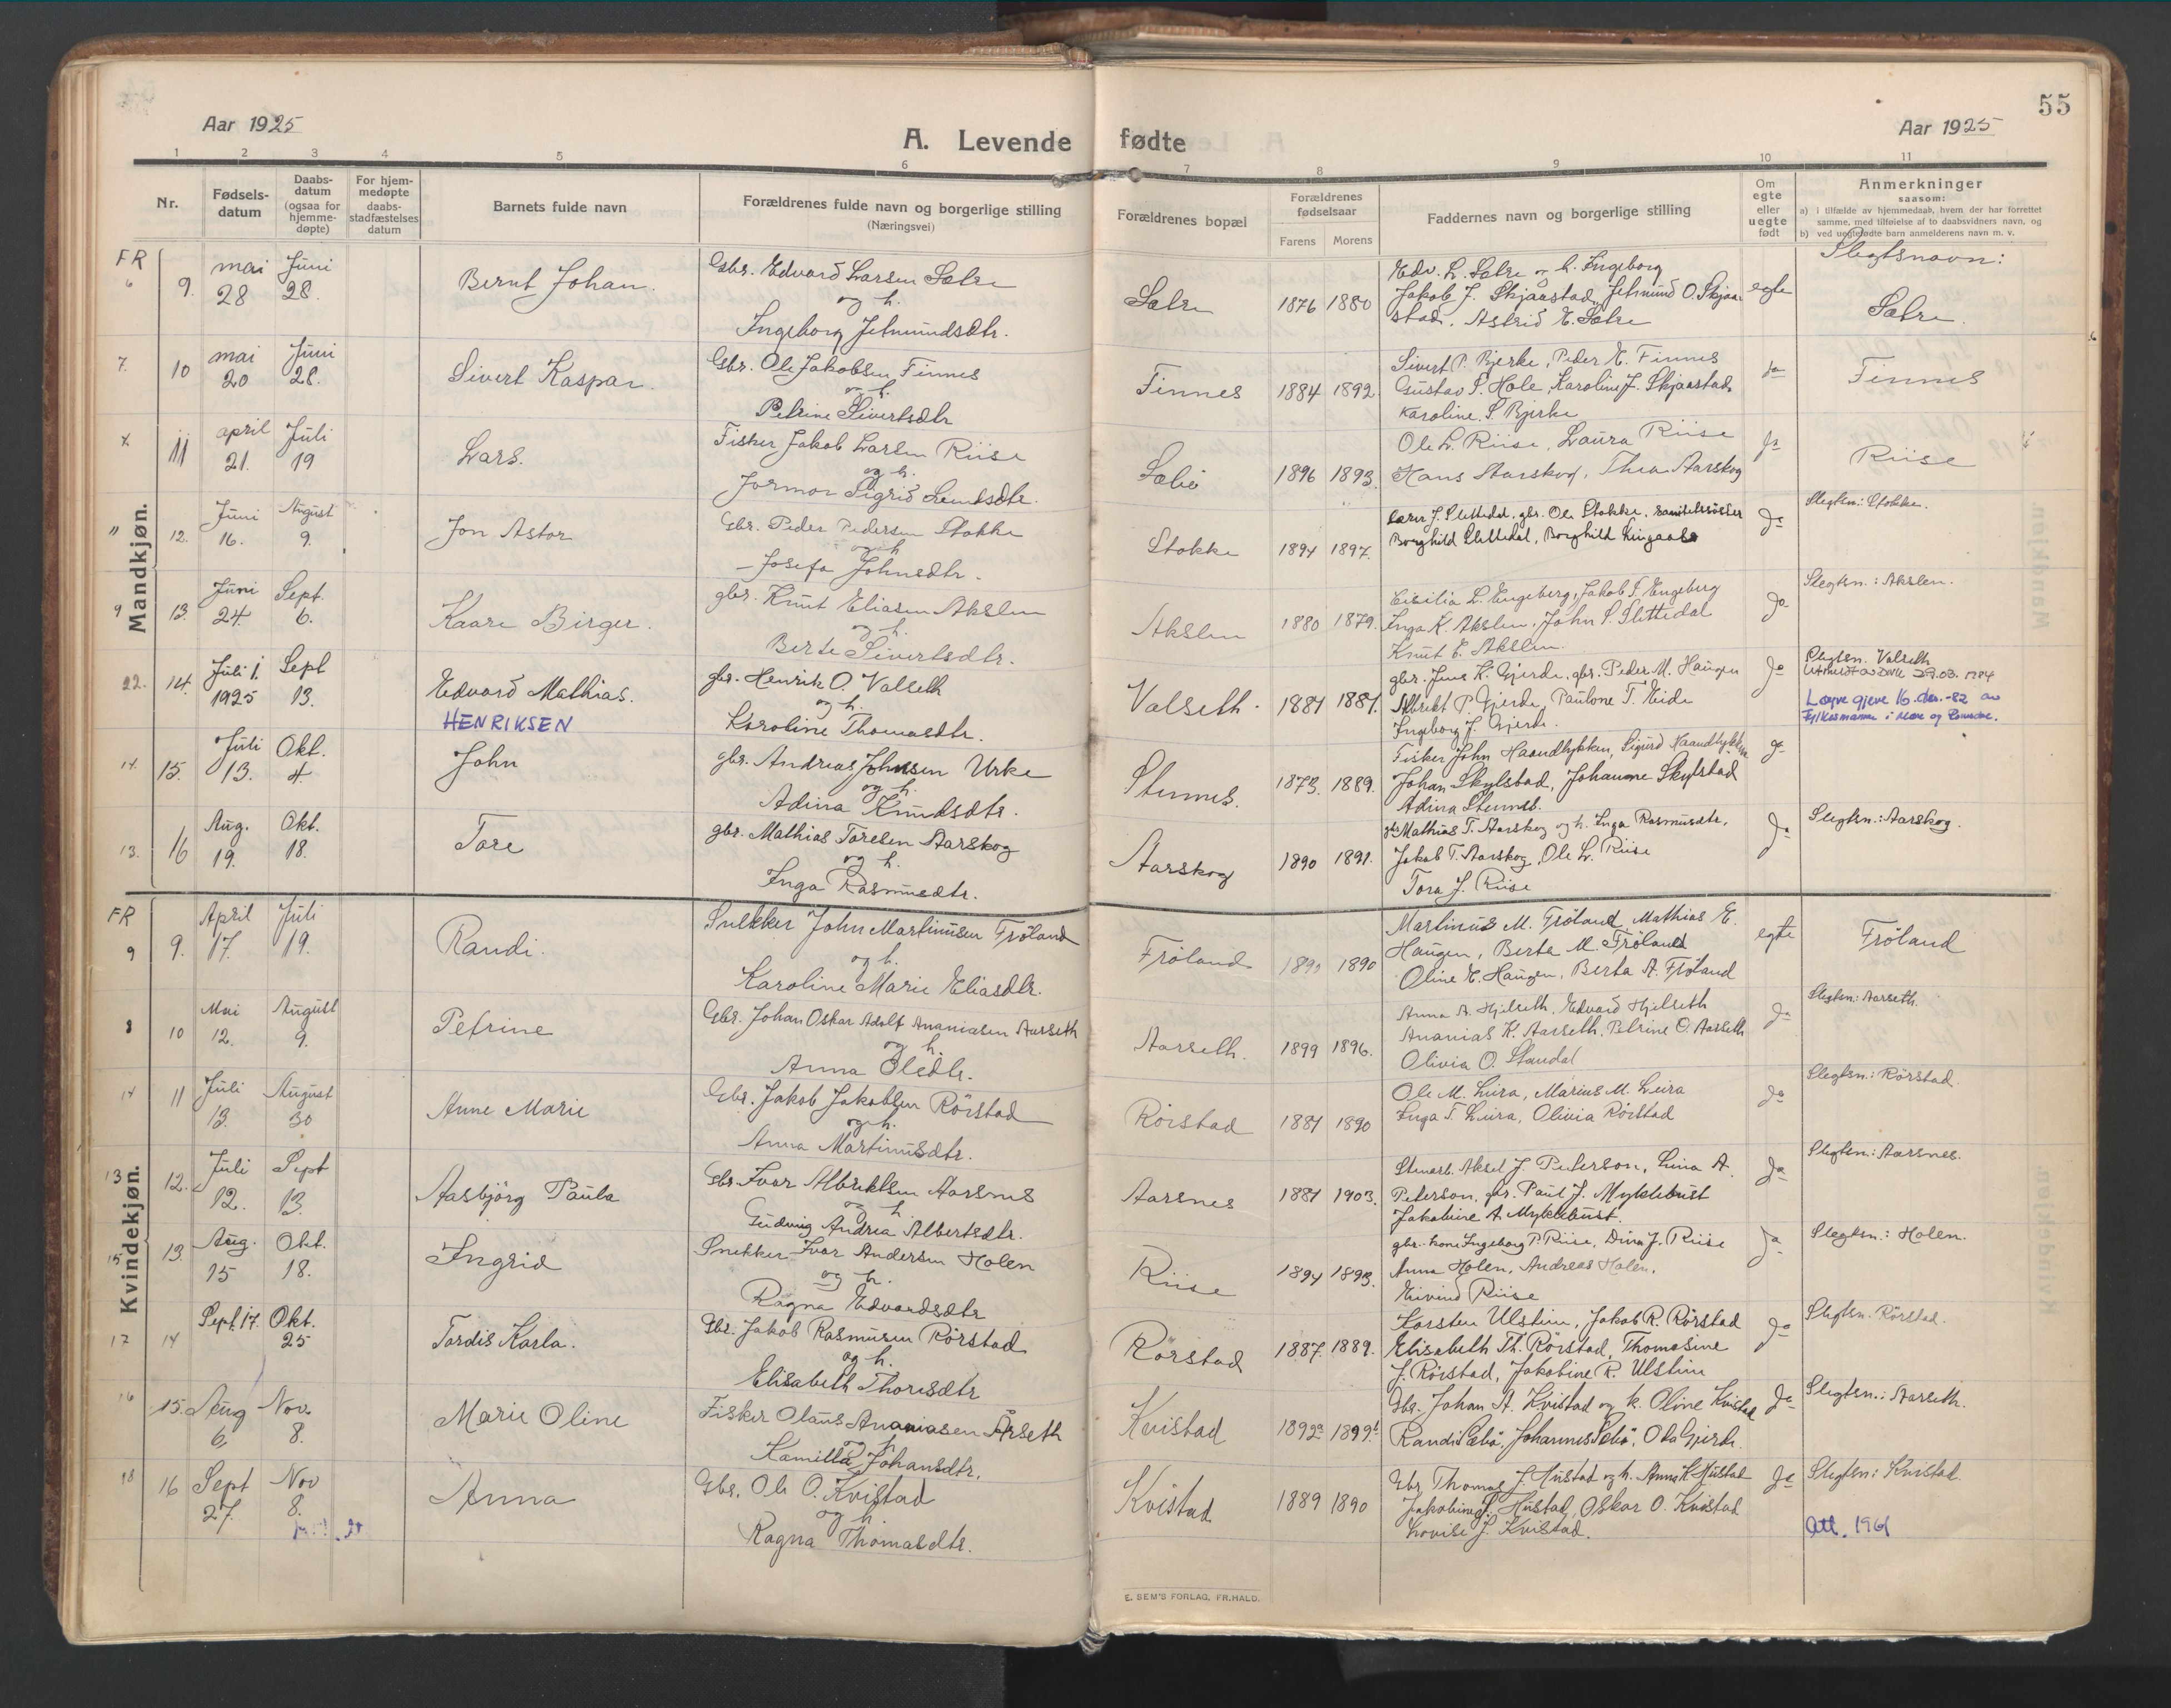 55
Aar 1925
A. Levende fødte
Aar 1925
1 2 3 4 5 6 7 8 9 10 11
Nr.
Fødsels-
datum
Daabs-
datum
(ogsaa for
hjemme-
døpte)
For hjem-
medøpte
daabs-
stadfæstelses
datum
Barnets fulde navn
Forældrenes fulde navn og borgerlige stilling
(Næringsvei)
Forældrenes bopæl
Forældrenes
fødselsaar
Farens Morens
Faddernes navn og borgerlige stilling
Om
egte
eller
uegte
født
Anmerkninger
saasom:
a) i tilfælde av hjemmedaab, hvem der har forrettet
samme, med tilføielse af to daabsvidners navn, og
b) ved uegtefødte barn anmelderens navn m. v.
Mandkjøn.
FR
6 9. mai 28 Juni 28. Bernt Johan.
Gbr. Edvard Larsen Sætre
og h.
Ingeborg Jetmundsdtr.
Sætre 1876 1880
Edv. L. Sætre og h. Ingeborg
Jakob J. Skjaastad, Jetmund O. Skjaa-
stad, Astrid E. Sætre
egte
Slegtsnavn:
Sætre.
7. 10 mai 20 Juni 28. Sivert Kaspar.
Gbr. Ole Jakobsen Finnes
og h.
Petrine Sivertsdtr
Finnes 1884 1892
Sivert P. Bjerke, Peder E. Finnes
Gustav S. Hole, Karoline J. Skjaastad
Karoline S. Bjerke
Ja
Finnes
11 april 21. Juli 19 Lars.
Fisker Jakob Larsen Riise
og h.
Sæbö 1896 1893.
Ole L. Riise, Laura Riise
Hans Aarskog, Thea Aarskog
Ja
Riise
11 12. Juni 16. August 9. Jon Astor
Gbr. Peder Pedersen Stokke
og h
Josefa Johnsdtr.
Stokke 1894 1897.
Lærer J. Slettedal, gbr. Ole Stokke, sanitetssöster
Borghild Slettedal, Borghild Lingaas
Ja
Slegtsn: Stokke.
9 13. Juni 24. Sept. 6. Kaare Birger.
gbr. Knut Eliasen Akslen
og h.
Berte Sivertsdtr.
Akslen 1880 1879.
Cisilia L. Engeberg, Jakob P. Engeberg
Inga K. Akslen, John S. Slettedal
Knut E. Akslen.
Ja
Slegtsn.: Akslen.
22. 14. Juli 1. 1925 Sept 13. Edvard Mathias.
HENRIKSEN
gbr. Henrik O. Valseth
og h.
Karoline Thomasdtr.
Valseth. 1884 1887.
gbr. Jens K. Gjerde, gbr. Peder M. Haugen
Albrikt P. Gjerde, Paulone T. Eide
Ingeborg J. Gjerde.
Ja
Slegtsn. Valseth
Løyve gjeve 16. des.-82 av
Fylkesmannen i Møre og Romsdal.
14. 15. Juli 13. Okt. 4. John
gbr. Andreas Johnsen Urke
og h.
Adina Knudsdtr.
Stennes. 1873. 1889.
Fisker John Haandlykken, Sigurd Haandlykken
Johan Skylstad, Johanne Skylstad
Adina Stennes.
Ja
13. 16 Aug. 19. Okt. 18. Tore
gbr. Mathias Toresen Aarskog
og h.
Inga Rasmusdtr.
Aarskog 1890 1891.
gbr. Mathias T. Aarskog og h. Inga Rasmusdtr.
Jakob T. Aarskog, Ole L. Riise
Tora J. Riise
Ja
Slegtsn.: Aarskog.
Kvindekjøn.
FR
9 9. April 17. Juli 19. Randi.
Snekker John Martinusen Fröland
og h.
Karoline Marie Eliasdtr.
Fröland 1890 1890
Martinus M. Fröland, Mathias E.
Haugen, Berta M. Fröland
Oline E. Haugen, Berta A. Fröland
egte
Fröland
8 10 Mai 12. August 9. Petrine
Gbr. Johan Oskar Adolf Ananiasen Aarseth
og h.
Anna Oledtr.
Aarseth. 1899 1896.
Anna A. Hjelseth, Edvard Hjelseth
Ananias K. Aarseth, Petrine O. Aarseth
Olivia O. Standal
Ja
Slegtsn: Aarseth.
14 11 Juli 13. August 30 Anne Marie
Gbr. Jakob Jakobsen Rörstad
og h.
Anna Martinusdtr.
Rörstad 1881 1890
Ole M. Leira, Marius M. Leira
Inga T. Leira, Olivia Rörstad
Ja
Slegtsn.: Rörstad.
13 12. Juli 12. Sept 13. Aasbjörg Paula
Gbr. Ivar Albriktsen Aarsnes
og h.
Gudvig Andrea Albertsdtr.
Aarsnes 1881 1903.
Stenarb. Aksel J. Peterson, Lina A.
Peterson, gbr. Paul J. Myklebust
Jakobine A. Myklebust.
Ja
Slegtsn.: Aarsnes.
15 13. Aug. 15 Okt. 18. Ingrid
Snekker Ivar Andersen Holen
og h.
Ragna Edvardsdtr
Riise 1894 1893.
gbr. kone Ingeborg P. Riise, Dina J. Riise
Anna Holen, Andreas Holen.
Eivind Riise
Ja
Slegtsn.: Holen.
17 14 Sept. 17. Okt. 25 Tordis Karla.
Gbr. Jakob Rasmusen Rörstad
og h.
Elisabeth Thorisdtr
Rörstad 1887. 1889.
Karsten Ulstein, Jakob R. Rörstad
Elisabeth Th. Rörstad, Thomasine
J. Rörstad, Jakobine R. Ulstein
Ja
Slegtsn. Rörstad.
16 15. Aug 6, Nov. 8. Marie Oline
Fisker Olaus Ananiasen Årseth
og h.
Kamilla Johansdtr.
Kvistad 1892 1899
Gbr. Johan A. Kvistad og k. Oline Kvistad
Randi Sæbö, Johannes Sæbö, Ola Gjerde.
Ja
Slegtsn.: Aarseth.
18 16 Sept 27. Nov 8. Anna
Gbr. Ole O. Kvistad
og h.
Ragna Thomasdtr.
Kvistad 1889 1890
Gbr. Thomas J. Hustad og h. Anna K. Hustad
Jakobine J. Hustad, Oskar O. Kvistad
Lovise J. Kvistad.
Ja
Slegtsn: Kvistad.
Att. 1961
E. SEM'S FORLAG, FR.HALD.